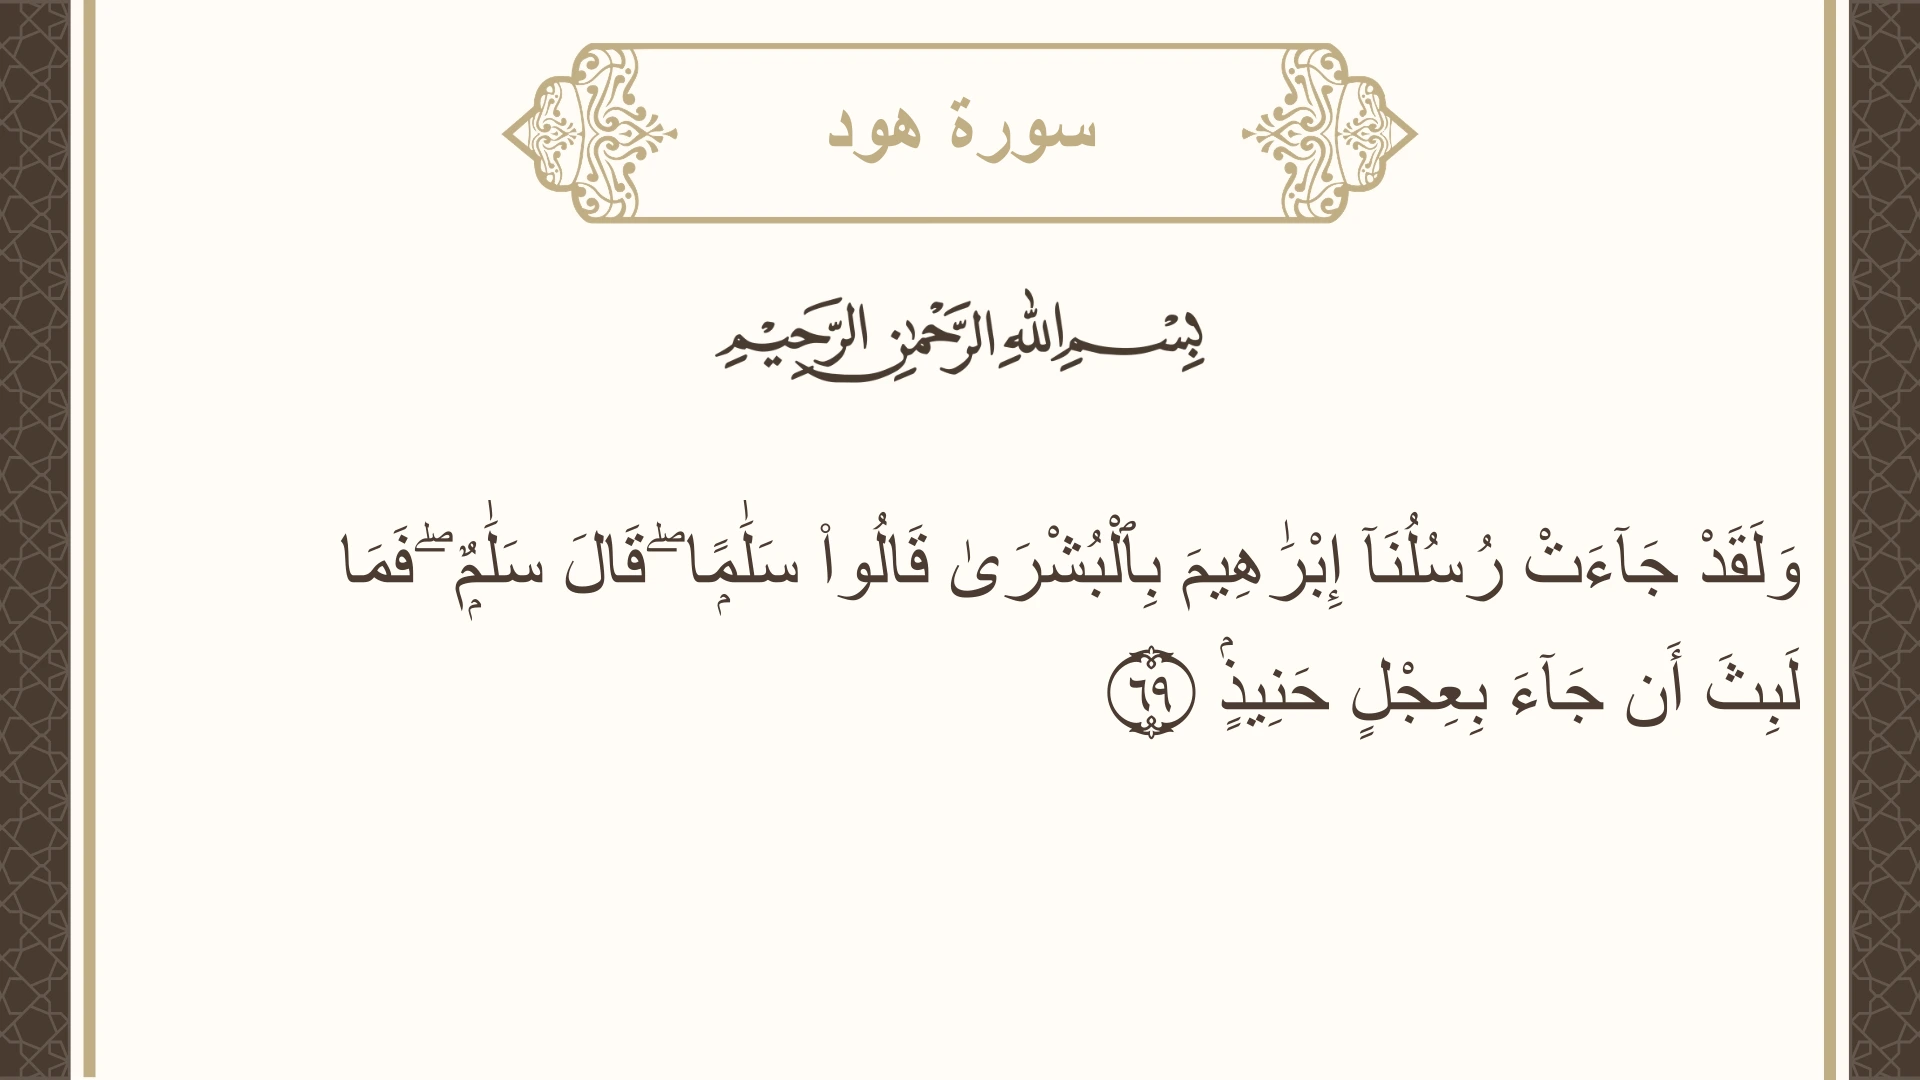 سورة هود
بِسْمِ اللهِ الرَّحْمٰنِ الرَّحِيْمِ
وَلَقَدْ جَآءَتْ رُسُلُنَآ إِبْرَٰهِيمَ بِٱلْبُشْرَىٰ قَالُوا۟ سَلَٰمًۭا ۖ قَالَ سَلَٰمٌۭ ۖ فَمَا
لَبِثَ أَن جَآءَ بِعِجْلٍ حَنِيذٍۢ ٦٩